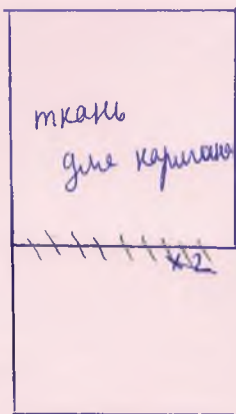 ткань
для кармана
x2